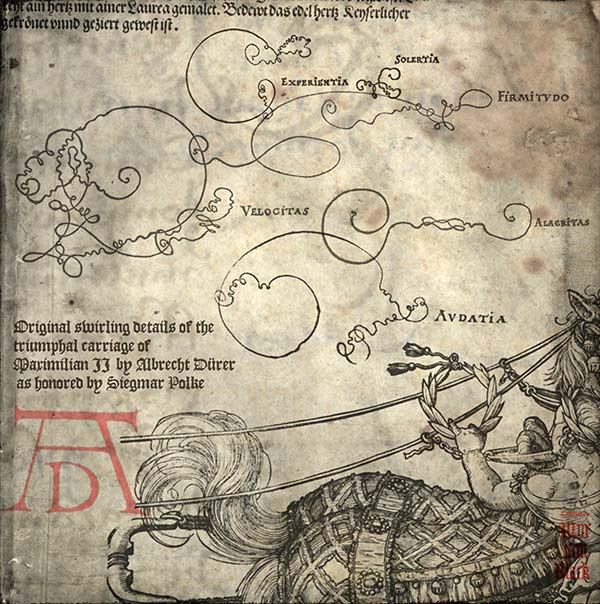 ain hertz mit ainer Laurea gemalet. Bedewt das edel hertz Keyserlicher
gekrönet vnnd geziert gewest ist.
SOLERTIA
EXPERIENTIA
FIRMITVDO
VELOCITAS
ALACRITAS
AVDATIA
Original swirling details of the
triumphal carriage of
Maximilian II by Albrecht Dürer
as honored by Siegmar Polke
AD